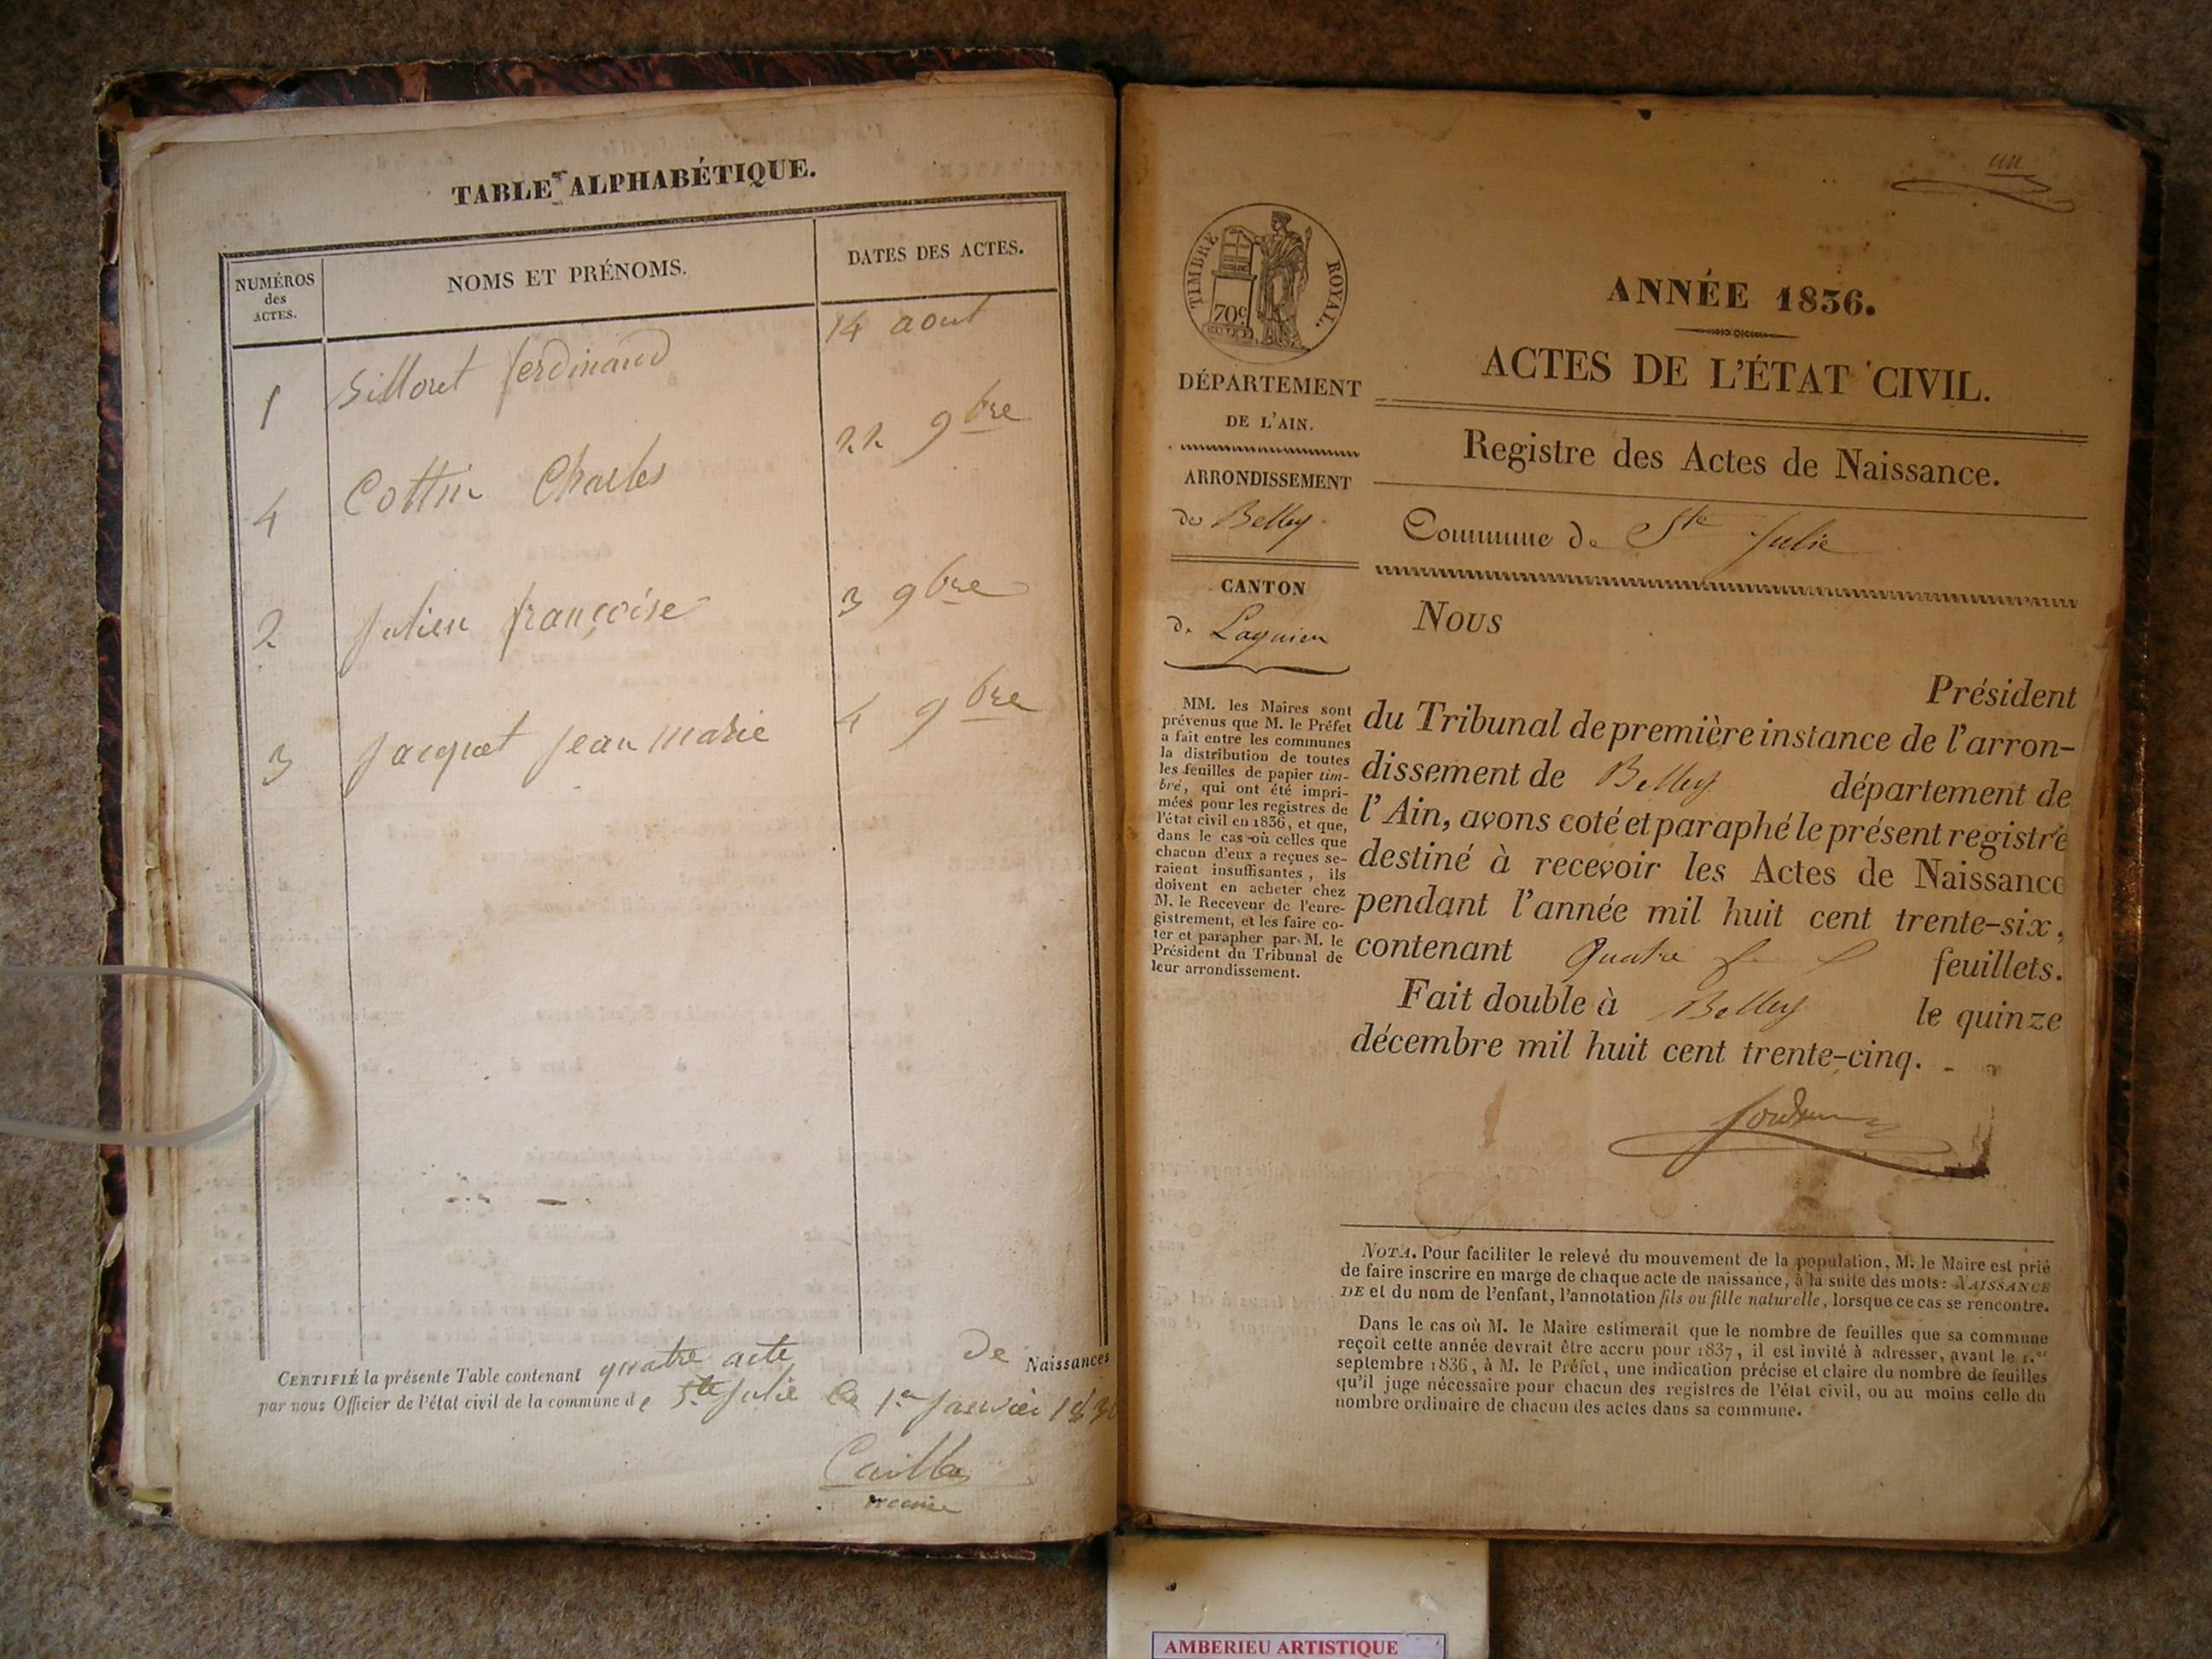 TABLE ALPHABÉTIQUE.
NUMÉROS
des
ACTES.
NOMS ET PRÉNOMS.
DATES DES ACTES.
1 Silloret ferdinand 14 aout
4 Cottin Charles 22 9bre
2 Julien françoise 3 9bre
3 Jacquet Jean marie 4 9bre
CERTIFIÉ la présente Table contenant quatre acte de Naissances
par nous Officier de l'état civil de la commune de Ste Julie le 1er Janvier
maire
un
TIMBRE ROYAL.
70c
DÉPARTEMENT
DE L'AIN.
ARRONDISSEMENT
de Belley.
CANTON
de Lagnieu
MM. les Maires sont
prévenus que M. le Préfet
a fait entre les communes
la distribution de toutes
les feuilles de papier tim-
bré, qui ont été impri-
mées pour les registres de
l'état civil en 1836, et que,
dans le cas où celles que
chacun d'eux a reçues se-
raient insuffisantes, ils
doivent en acheter chez
M. le Receveur de l'enre-
gistrement, et les faire co-
ter et parapher par M. le
Président du Tribunal de
leur arrondissement.
ANNÉE 1836.
ACTES DE L'ÉTAT CIVIL.
Registre des Actes de Naissance.
Commune de Ste Julie
Nous
Président
du Tribunal de première instance de l'arron-
dissement de Belley département de
l'Ain, avons coté et paraphé le présent registre
destiné à recevoir les Actes de Naissance
pendant l'année mil huit cent trente-six,
contenant Quatre feuillets.
Fait double à Belley le quinze
décembre mil huit cent trente-cinq.
NOTA. Pour faciliter le relevé du mouvement de la population, M. le Maire est prié
de faire inscrire en marge de chaque acte de naissance, à la suite des mots: NAISSANCE
DE et du nom de l'enfant, l'annotation fils ou fille naturelle, lorsque ce cas se rencontre.
Dans le cas où M. le Maire estimerait que le nombre de feuilles que sa commune
reçoit cette année devrait être accru pour 1837, il est invité à adresser, avant le 1.er
septembre 1836, à M. le Préfet, une indication précise et claire du nombre de feuilles
qu'il juge nécessaire pour chacun des registres de l'état civil, ou au moins celle du
nombre ordinaire de chacun des actes dans sa commune.
AMBERIEU ARTISTIQUE